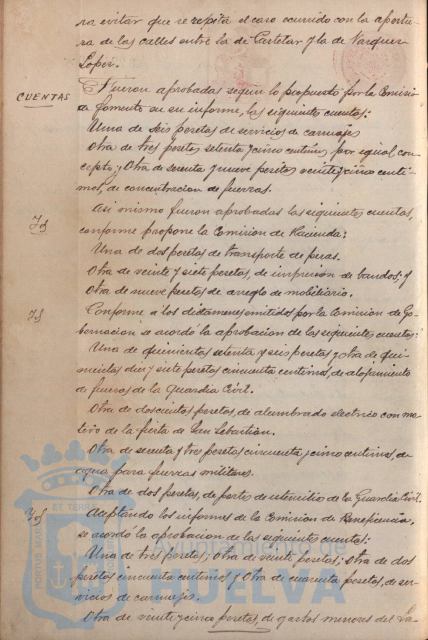 ra evitar que se repita el caso ocurrido con la apertu-
ra de las calles entre la de Cartelar y la de Vazquez
Lopez.
CUENTAS
Fueron aprobadas segun lo propuesto por la Comision
de Fomento en su informe, las siguientes cuentas:
Una de seis pesetas de servicios de carruajes
Otra de tres pesetas setenta y cinco centimos, por igual con-
cepto; y Otra de sesenta y nueve pesetas veinte y cinco centi-
mos, de concentracion de fuerzas.
Asi mismo fueron aprobadas las siguientes cuentas,
conforme propone la Comision de Hacienda:
Una de dos pesetas de transporte de
Otra de veinte y siete pesetas, de impresion de bandos; y
Otra de nueve pesetas de arreglo de mobiliario.
Conforme a los dictamenes emitidos por la Comision de Go-
bernacion se acordó la aprobacion de las siguientes cuentas:
Una de quinientas setenta y seis pesetas y otra de qui-
nientas diez y siete pesetas cincuenta centimos, de alojamiento
de fuerzas de la Guardia Civil.
Otra de doscientas pesetas, de alumbrado electrico con mo-
tivo de la fiesta de San Sebastian.
Otra de sesenta y tres pesetas cincuenta y cinco centimos, de
agua para fuerzas militares.
Otra de dos pesetas, de portes de utensilio de la Guardia Civil.
Aceptando los informes de la Comision de Beneficencia,
se acordó la aprobacion de las siguientes cuentas:
Una de tres pesetas; Otra de veinte pesetas; Otra de dos
pesetas cincuenta centimos y Otra de cuarenta pesetas, de ser-
vicios de carruajes.
Otra de veinte y cinco pesetas, de gastos menores del
Ayuntamiento de
HUELVA